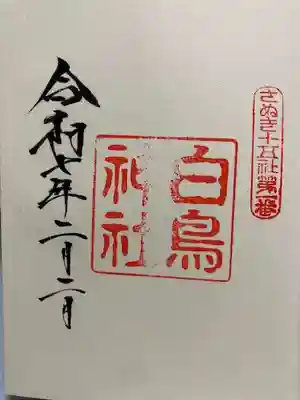 さぬき十五社第一番
白鳥
神社
令和七年二月二日